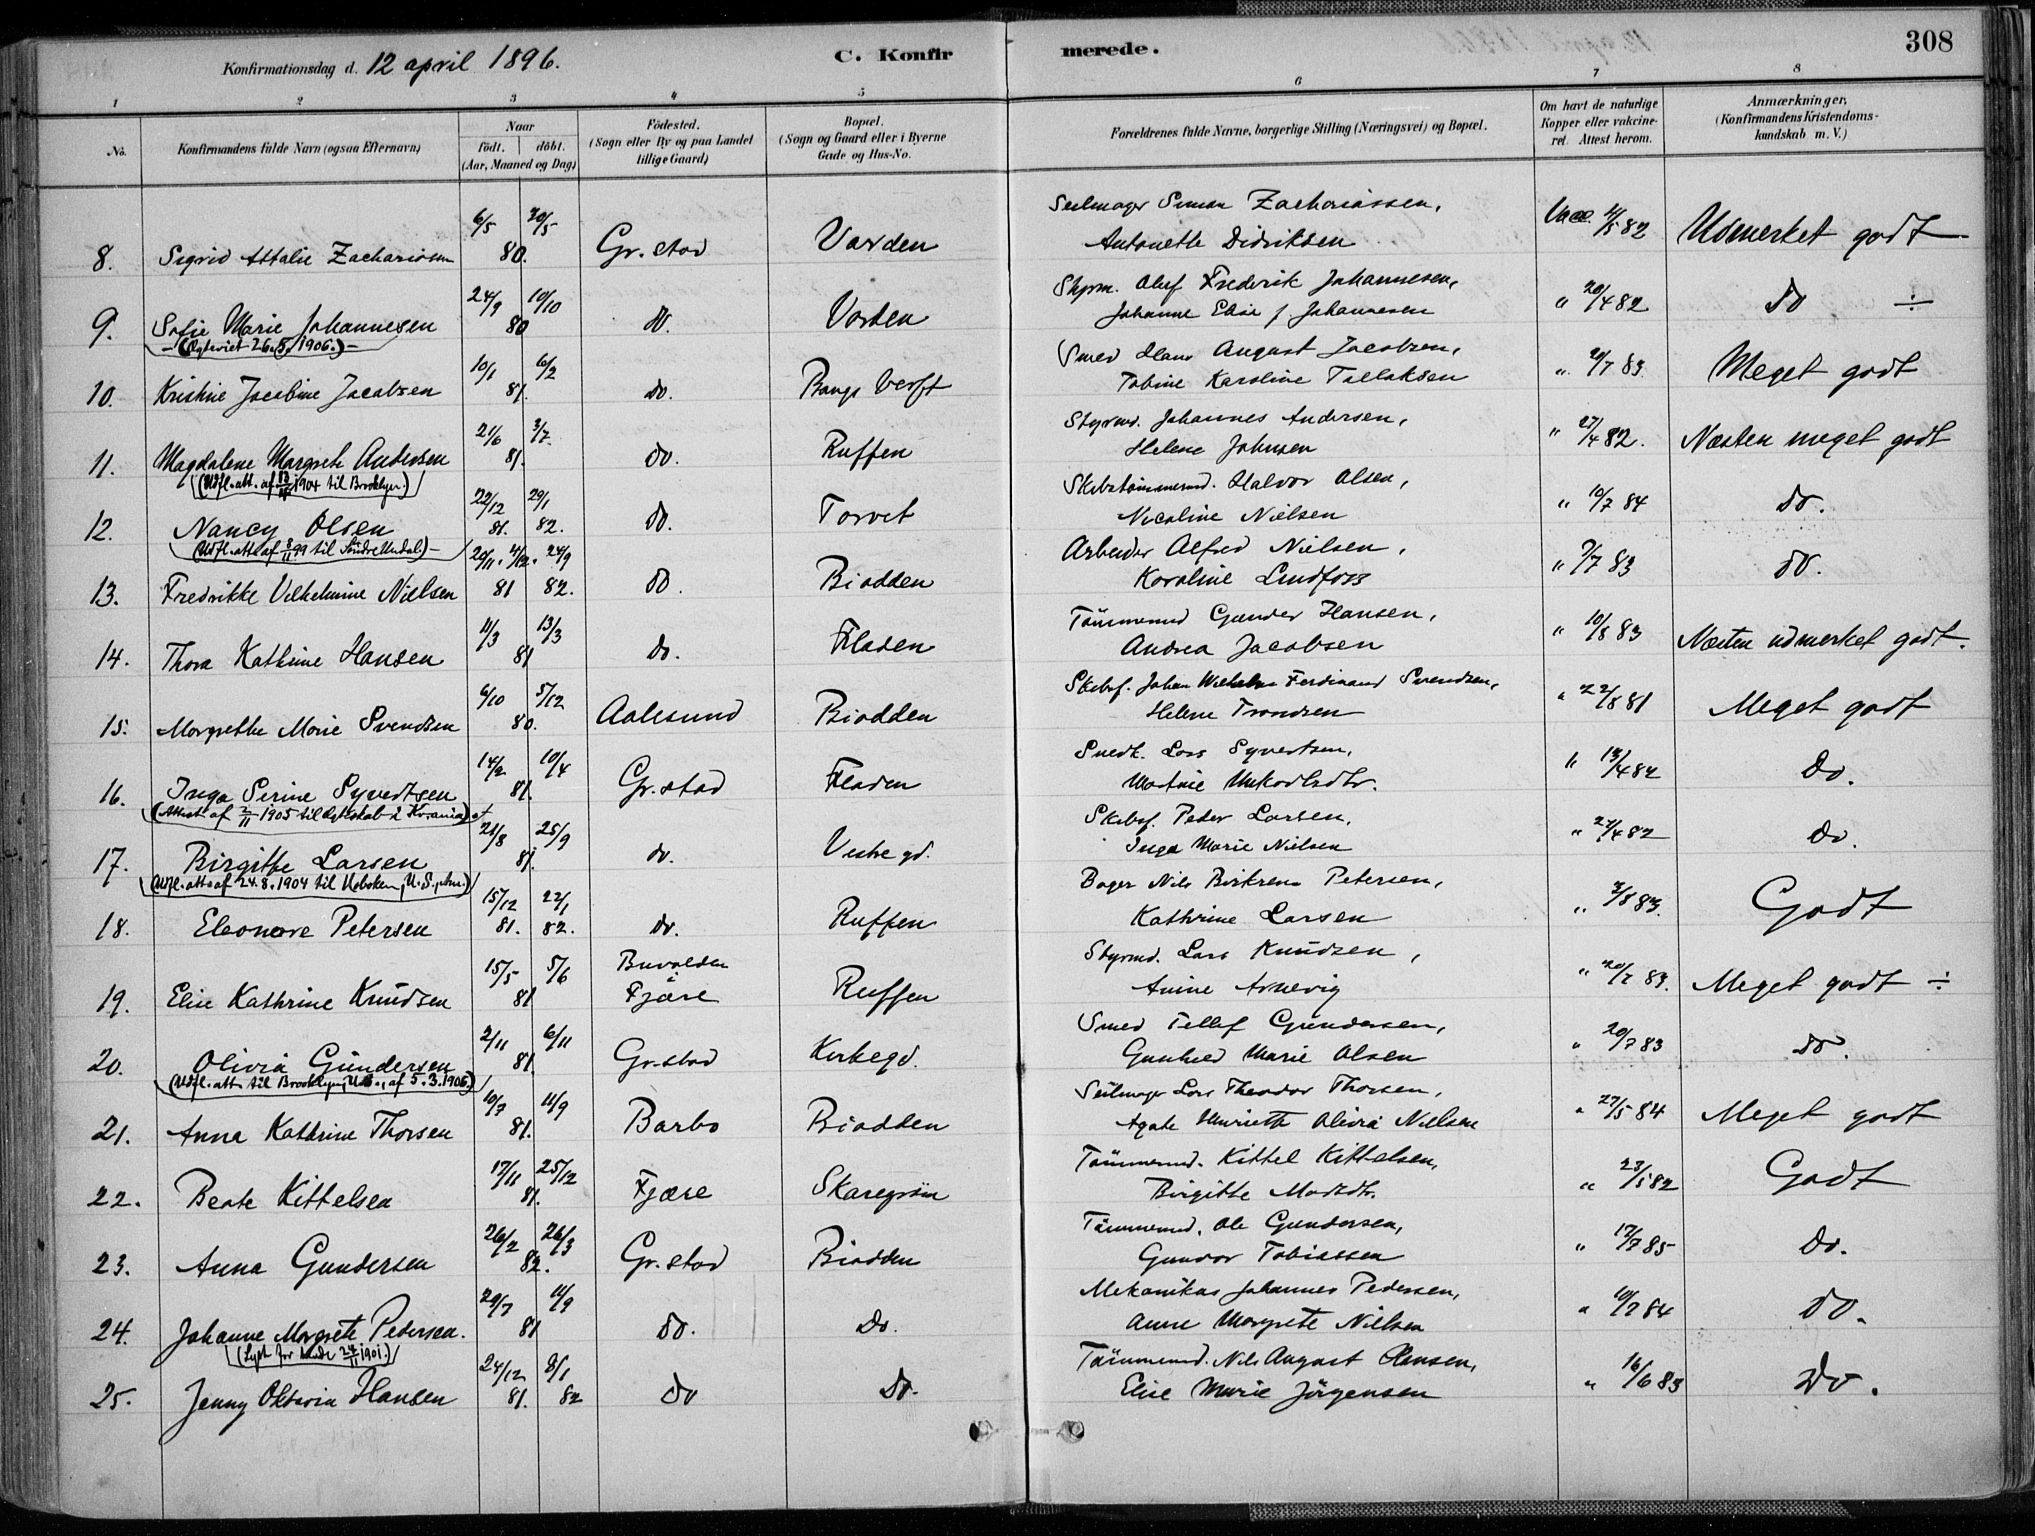 308
Konfirmationsdag d. 12 april 1896.
C. Konfirmerede.
1 2 3 4 5 6 7 8
No.
Konfirmandens fulde Navn (ogsaa Efternavn)
Naar
født. døbt.
(Aar, Maaned og Dag)
Fødested.
(Sogn eller By og paa Landet
tillige Gaard)
Bopæl.
(Sogn og Gaard eller i Byerne
Gade og Hus-No.
Forældrenes fulde Navne, borgerlige Stilling (Næringsvei) og Bopæl.
Om havt de naturlige
Kopper eller vakcine-
ret. Attest herom.
Anmærkninger,
(Konfirmandens Kristendoms-
kundskab m. V.)
8. Sigrid Attalie Zachariasen 6/5 30/5 80. Gr.stad Varden
Seilmager Simon Zachariassen,
Antonette Didriksen
Vacc. 82 Udmerket godt
9. Sofie Marie Johannesen 24/9 10/10 80 do. Varden
(Ægteviet 26.5.1906.)
Skpm. Oluf Frederik Johannesen,
Johanne Elise f. Johannesen
" 20/4 82 do ÷
10. Kristine Jacobine Jacobsen 10/1 6/2 81. do. Bangs Verft
Smed Hans August Jacobsen,
Tobine Karoline Tallaksen
" 20/7 83 Meget godt
11. Magdalene Margrete Andersen 21/6 3/7 81. do. Ruffen
(Udfl.att. af 1904 til Brooklyn.)
Styrmd. Johannes Andersen,
Helene Johnsen
" 27/4 82. Næsten meget godt
12. Nancy Olsen 22/12 81. 29/1 82. do. Torvet
(Udfl.att. af 8/11 99 til Søndre Undal)
Skibstømmermd. Halvor Olsen,
Nicoline Nielsen
" 10/7 84 do.
13. Fredrikke Vilhelmine Nielsen 20/11 81 24/9 82. do. Biodden
Arbeider Alfred Nielsen,
Karoline Lindfoss
" 7/7 83 do.
14. Thora Kathrine Hansen 11/3 13/3 81 do. Fladen
Tømmermd Gunder Hansen,
Andrea Jacobsen
" 10/8 83 Næsten udmerket godt.
15. Margrethe Marie Svendsen 6/10 5/12 80. Aalesund Biodden
Skibsf. Johan Wilhelm Ferdinand Svendsen,
Helene Trondsen
" 22/8 81 Meget godt
16. Inga Serine Syvertsen 14/2 10/4 81. Gr.stad Fladen
(Attest af 2/11 1905 til Ægteskab i Krania)
Snedk. Lars Syvertsen,
" 13/4 82 do.
17. Birgitte Larsen 21/8 25/9 81. do. Vestregd.
(Udfl.att. af 24.8.1904 til Hoboken, U.S. Am.)
Skibsf. Peder Larsen,
Inga Marie Nielsen
" 27/4 82 do.
18. Eleonore Petersen 15/12 81. 22/1 82. do. Ruffen
Bager Nils Birkrem Petersen,
Kathrine Larsen
" 3/8 83. Godt
19. Elise Kathrine Knudsen 15/5 5/6 81 Buvolden i Fjære Ruffen
Styrmd. Lars Knudsen,
Anine Arnevig
" 20/7 83. Meget godt ÷
20. Olivia Gundersen 2/11 6/11 81. Gr.stad Kirkegd.
(Udfl.att. til Brooklyn, U.S., af 5.3.1906)
Smed Tellef Gundersen,
Gunhild Marie Olsen
" 20/7 83 do.
21. Anna Kathrine Thorsen 10/7 11/9 81. Barbo Biodden
Seilmager Lars Theodor Thorsen,
Agate Henriette Olivia Nielsen
" 27/5 84 Meget godt
22. Beate Kittelsen 17/11 25/12 81. Fjære Skaregrøm
Tømmermd. Kittel Kittelsen,
Birgitte Madsdtr.
" 82 Godt
23. Anna Gundersen 26/2 26/3 82. Gr.stad Biodden
Tømmermd. Ole Gundersen,
Gunvor Tobiassen
" 17/7 85 do.
24. Johanne Margrete Pedersen. 29/7 11/9 81 do. do.
(Lyst for 24/11 1901.)
Mekanikus Johannes Pedersen,
Anne Margrete Nielsen
" 10/7 84 do.
25. Jenny Oktavia Hansen 24/12 81. 8/1 82 do do.
Tømmermd. Nils August Hansen,
Elise Marie Jörgensen
" 16/6 83 do.